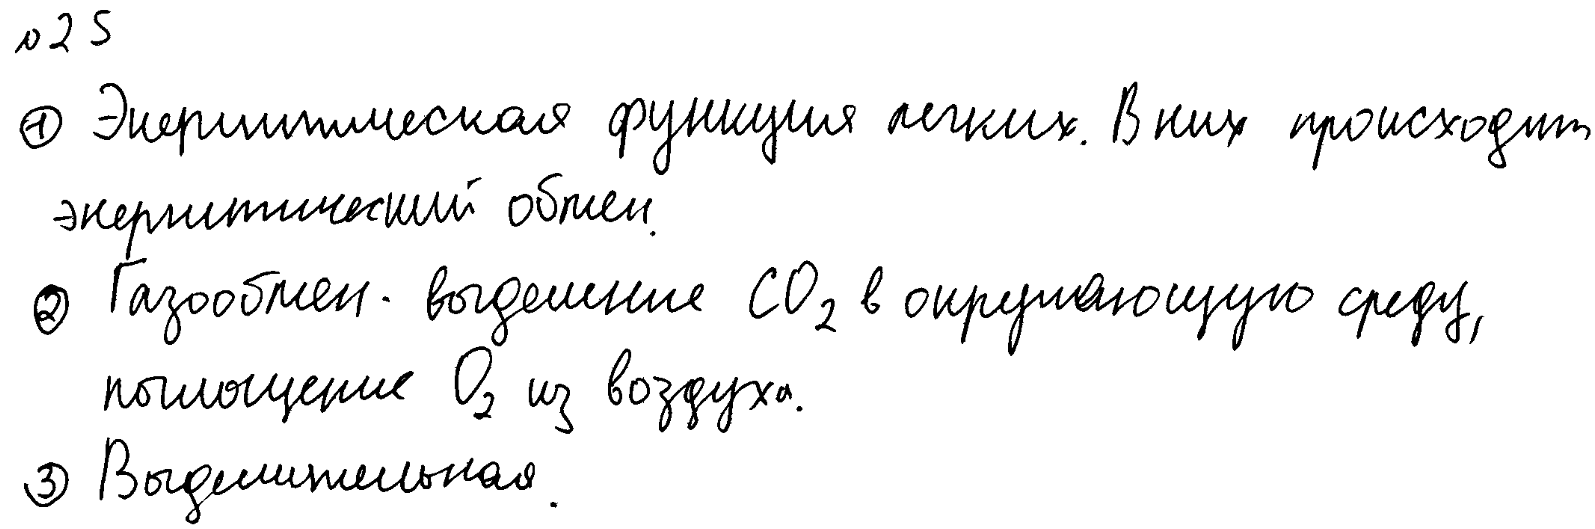 №25
① Энергитическая функция легких. В них происходит
энергитический обмен.
② Газообмен. выделение CO₂ в окружающую среду,
поглощение O₂ из воздуха.
③ Выделительная.